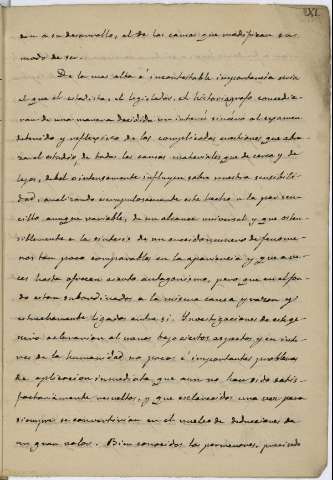 XI.
den a su desarrollo, el de las causas que modifican su
modo de ser.
De la mas alta é incontestable importancia seria
el que el estadista, el legislador, el historiógrafo concedie-
ran de una manera decidida un interés sincero al examen
detenido y reflexivo de las complicadas cuestiones que abra-
za el estudio, de todas las causas materiales que de cerca y de
lejos, debil o intensamente influyen sobre nuestra sensibili-
dad, analizando escrupulosamente este hecho a la par sen-
cillo aunque variable, de un alcance universal, y que osten-
siblemente es la sintesis de un crecido número de fenome-
nos tan poco comparables en la apariencia y que a ve-
ces hasta ofrecen cierto antagonismo, pero que en el fon-
do estan subordinados a la misma causa y
estrechamente ligados entre si. Investigaciones de este ge-
nero aclararian al menos bajo ciertos aspectos y en inte-
rés de la humanidad no pocos é importantes problemas
de aplicacion inmediata que aun no han sido satis-
factoriamente resueltos, y que esclarecidos una vez para
siempre se convertirian en el nucleo de deducciones de
un gran valor. Bien conocidos los pormenores, precisado